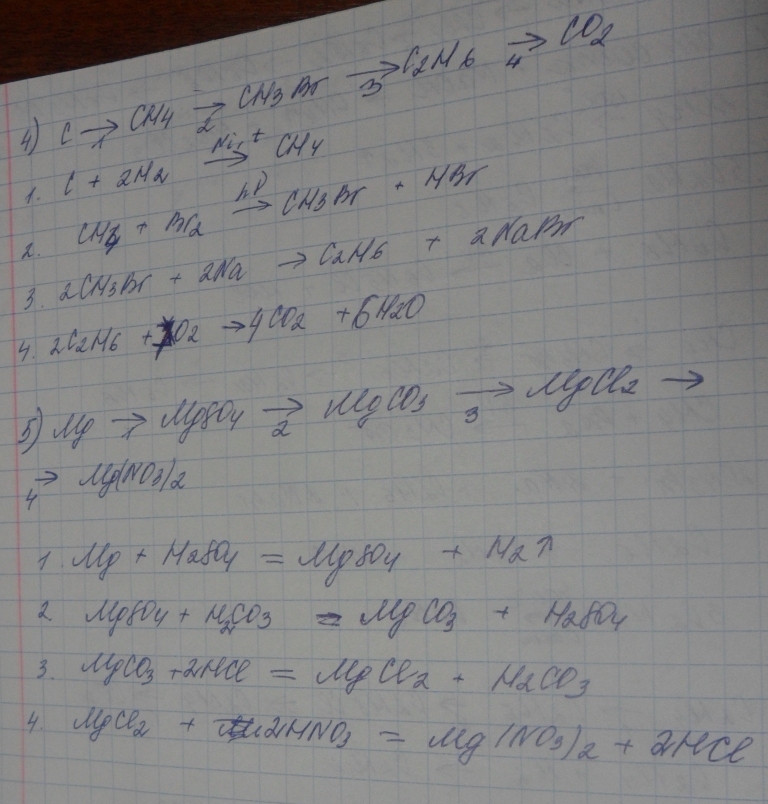 4) C →1 CH4 →2 CH3Br →3 C2H6 →4 CO2
1. C + 2H2 Ni, t → CH4
2. CH4 + Br2 hν → CH3Br + HBr
3. 2CH3Br + 2Na → C2H6 + 2NaBr
4. 2C2H6 + 7O2 → 4CO2 + 6H2O
5) Mg →1 MgSO4 →2 MgCO3 →3 MgCl2 →
→4 Mg(NO3)2
1. Mg + H2SO4 = MgSO4 + H2↑
2. MgSO4 + H2CO3 = MgCO3 + H2SO4
3. MgCO3 + 2HCl = MgCl2 + H2CO3
4. MgCl2 + 2HNO3 = Mg(NO3)2 + 2HCl